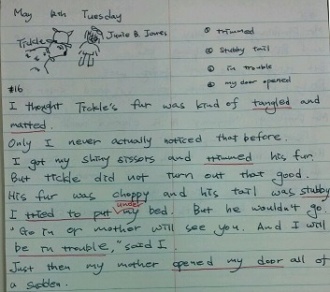 May 12th Tuesday
Tickle
Junie B Jones
① trimmed
② stubby tail
③ in trouble
④ my door opened
#16
I thought Tickle's fur was kind of tangled and
matted.
Only I never actually noticed that before.
I got my shiny sissors and trimmed his fur.
But tickle did not turn out that good.
His fur was choppy and his tail was stubby
I tried to put under my bed. But he wouldn't go.
"Go in or mother will see you. And I will
be in trouble," said I.
Just then my mother opened my door all of
a sudden.